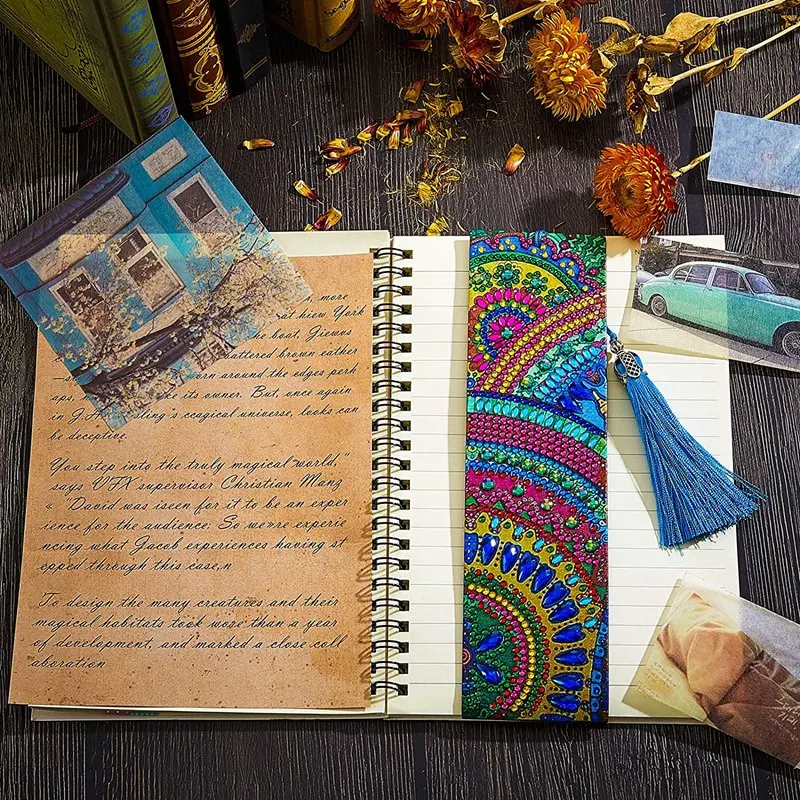 , more
at hiew. York
he boat, Jiewos
hattered brown eather
orn around the edges perh
aps, ke its owner. But, once again
in J. ling's ccagical universe, looks can
be deceptive.
You step into the truly magical world,"
says VFX supervisor Christian Manz
« "David was iseen for it to be an exper
ience for the audience. So we»re experie
ncing what Jacob experiences having st
epped through this case,n
To design the many creatures and their
magical habitats took wose than a year
of development, and marked a close coll
aboration